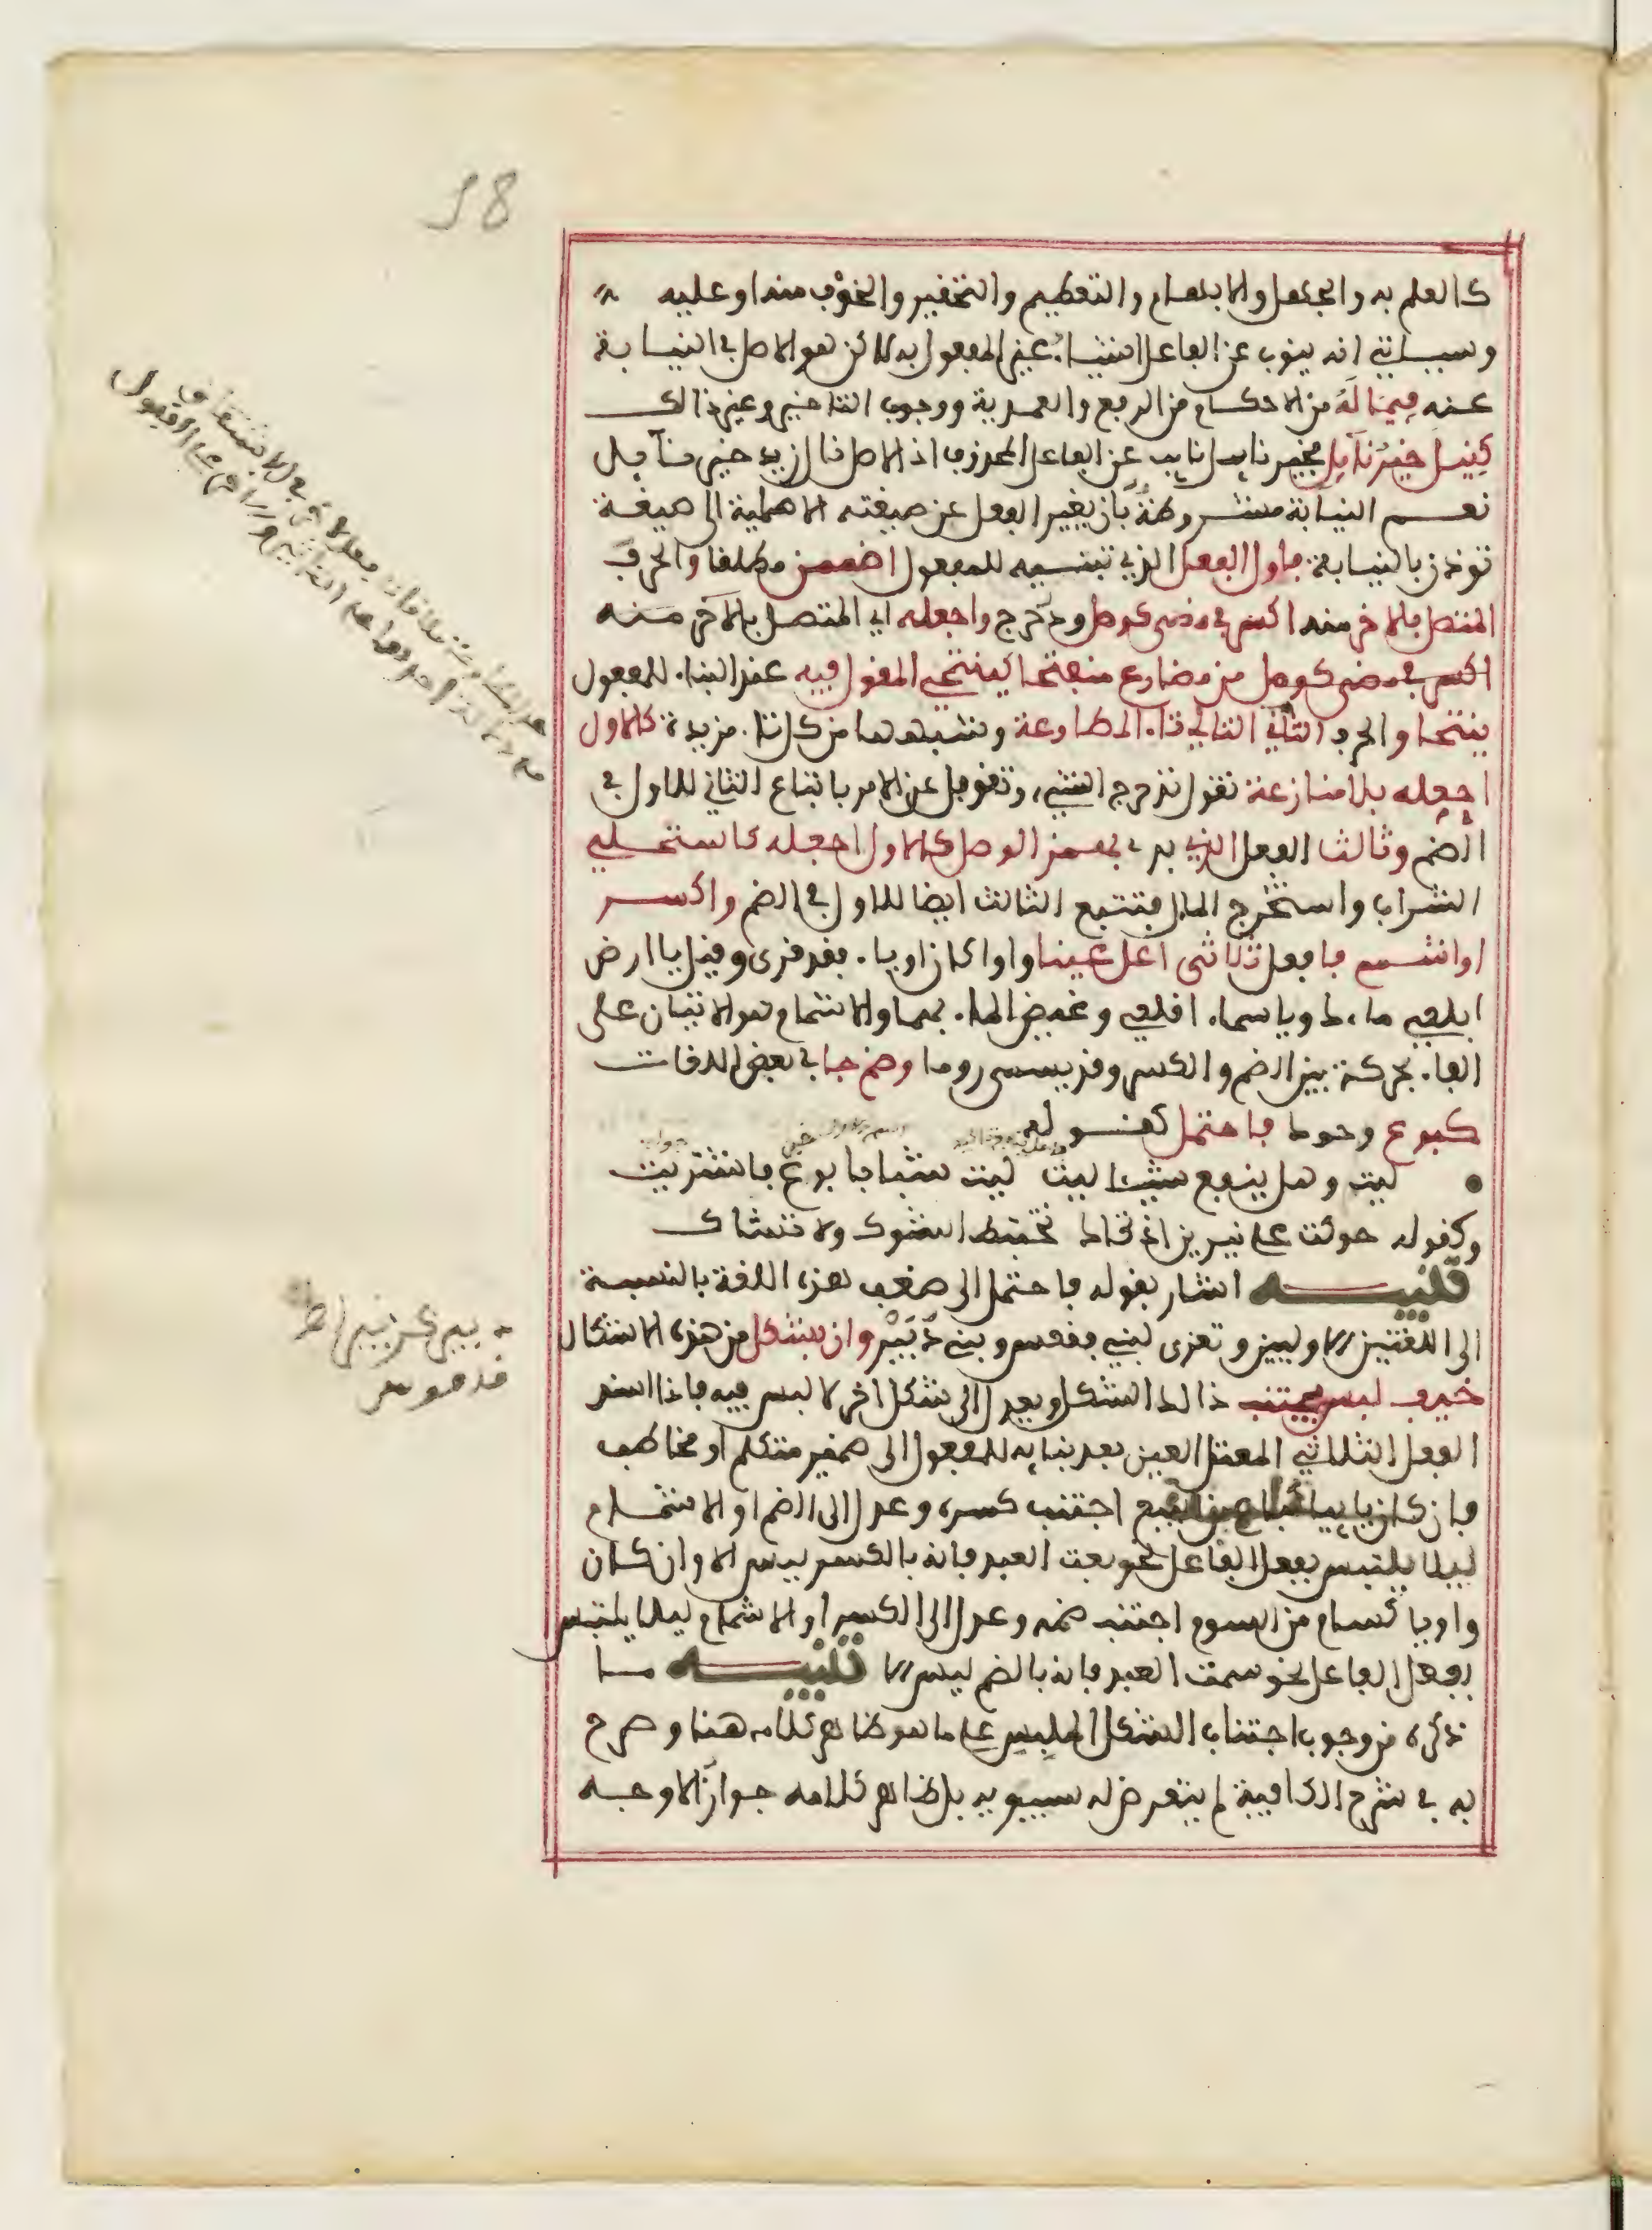 كالعلم به والجهل والابهام والتعظيم والتحقير والخوف منه او عليه
وسياتي انه ينوب عن الفاعل اشياء غير المفعول به لاكن هو الاصل في النيابة
عنه فيما له من الاحكام من الرفع والعمدية ووجوب التاخير وغير ذالك
كنيل خير نايل فخير نايل نايب عن الفاعل المحذوف اذ الاصل نال زيد خير نايل
نعم النيابة مشروطة بان يغير الفعل عن صيغته الاصلية الى صيغة
توذن بالنيابة فاول الفعل الذي تبنيه للمفعول اضممن مطلقا والحرف
المتصل بالاخر منه اكسر في مضي كوصل ودحرج واجعله اي المتصل بالاخر منه
اكسر في مضي كوصل من مضارع منفتحا كينتحي المقول فيه عند البناء للمفعول
ينتحا والحرف الثاني التالي تاء المطاوعة وشبهها من كل تاء مزيدة كالاول
اجعله بلا منازعة تقول تدحرج الشيء وتغوفل عن الامر باتباع الثاني للاول في
الضم وثالث الفعل الذي بدء بهمز الوصل كالاول اجعله كاستحلي
الشراب واستخرج المال فتتبع الثالث ايضا للاول في الضم واكسر
او اشمم فا فعل ثلاثي اعل عينا واوا كان او ياء فقد قرئ وقيل يا ارض
ابلعي ماءك ويا سماء اقلعي وغيض الماء بهما والاشمام هو الاتيان على
الفاء بحركة بين الضم والكسر وقد يسمى روما وضم جا في بعض اللغات
كبوع وحوك فاحتمل كقوله
ليت وهل ينفع شيئا ليت ليت شبابا بوع فاشتريت
وكقوله حوكت على نيرين اذ تحاك تختبط الشوك ولا تشاك
تنبيه اشار بقوله فاحتمل الى ضعف هذه اللغة بالنسبة
الى اللغتين الاوليين وتعزى لبني فقعس وبني دبير وان بشكل من هذه الاشكال
خيف لبس يجتنب ذالك الشكل ويعدل الى شكل اخر لا لبس فيه فاذا اسند
الفعل الثلاثي المعتل العين بعد بنايه للمفعول الى ضمير متكلم او مخاطب
فان كان يايياً كباع من البيع اجتنب كسره وعدل الى الضم او الاشمام
ليلا يلتبس بفعل الفاعل نحو بعت العبد فانه بالكسر ليس الا وان كان
واويا كسام من السوم اجتنب ضمه وعدل الى الكسر او الاشمام ليلا يلتبس
بفعل الفاعل نحو سمت العبد فانه بالضم ليس الا تنبيه ما
ذكره من وجوب اجتناب الشكل الملبس على ما هو ظاهر كلامه هنا وصرح
به في شرح الكافية لم يتعرض له سيبويه بل ظاهر كلامه جواز الاوجه